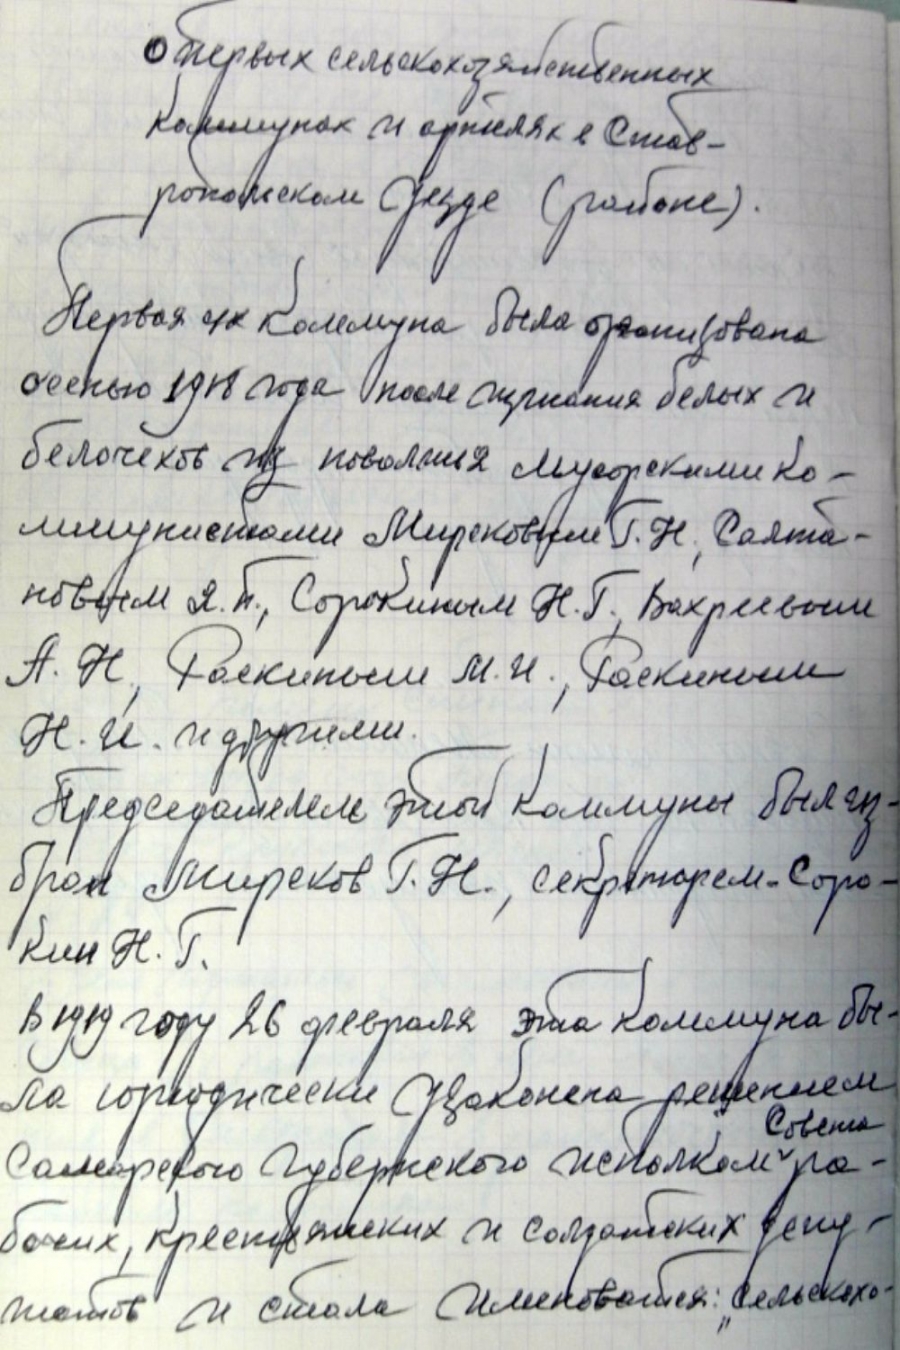 О первых сельскохозяйственных
коммунах и артелях в Став-
ропольском уезде (районе).
Первая с/х коммуна была организована
осенью 1918 года после изгнания белых и
белочехов из поволжья Мусорскими ко-
ммунистами Мирековым Г.Н., Салта-
новым Я.П., Сорокиным Н.Г., Вахреевым
А.Н., Раскиным М.И., Раскиным
Н.И. и другими.
Председателем этой коммуны был из-
бран Миреков Г.Н., секретарем - Соро-
кин Н.Г.
В 1919 году 26 февраля эта коммуна бы-
ла юридически узаконена решением
Совета
Самарского губернского исполком ра-
бочих, крестьянских и солдатских депу-
татов и стала именоваться: "Сельскохо-